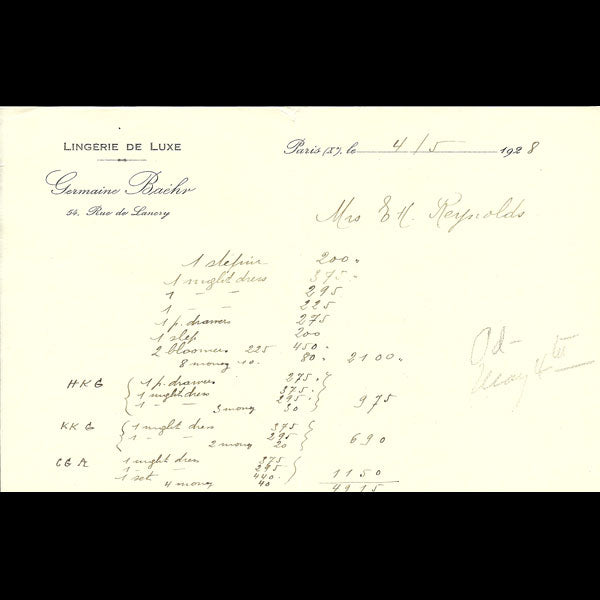 LINGERIE DE LUXE
Germaine Baëhr
54, Rue de Lancry
Paris (Xe), le 4/5 1928
Mrs E H. Reynolds
1 stepin 200.
1 night dress 375.
1 — — 295
1 — — 225
1 p. drawers 275
1 slep 200
2 bloomers 225 450.
8 monog 10. 80. 2100.
HKG 1 p. drawers 275.
1 night dress 375.
1 — — 295.
3 monog 30 975
KKG 1 night dress 375
1 — — 295
2 monog 20 690
CGA 1 night dress 375
1 — — 295
1 set 440.
4 monog 40 1150
4915
Pd-
May 4th